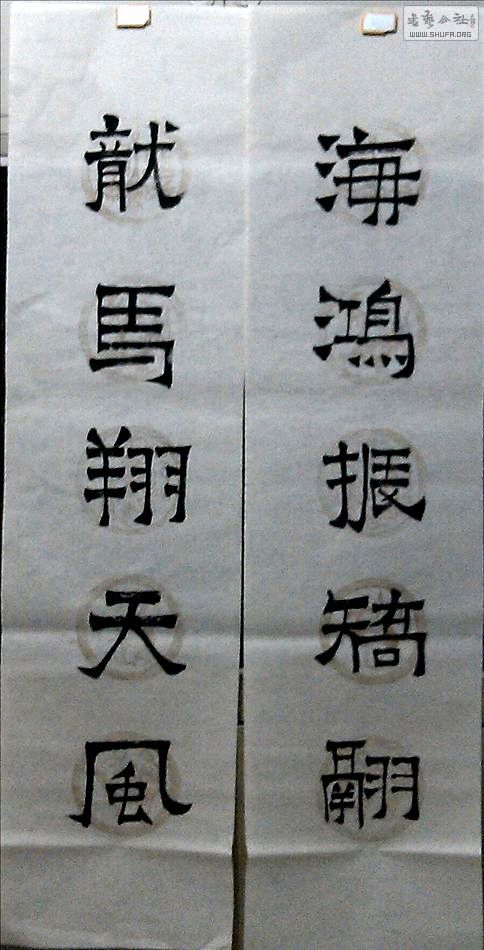 海鴻振矯翮
龍馬翔天風
书艺公社
WWW.SHUFA.ORG